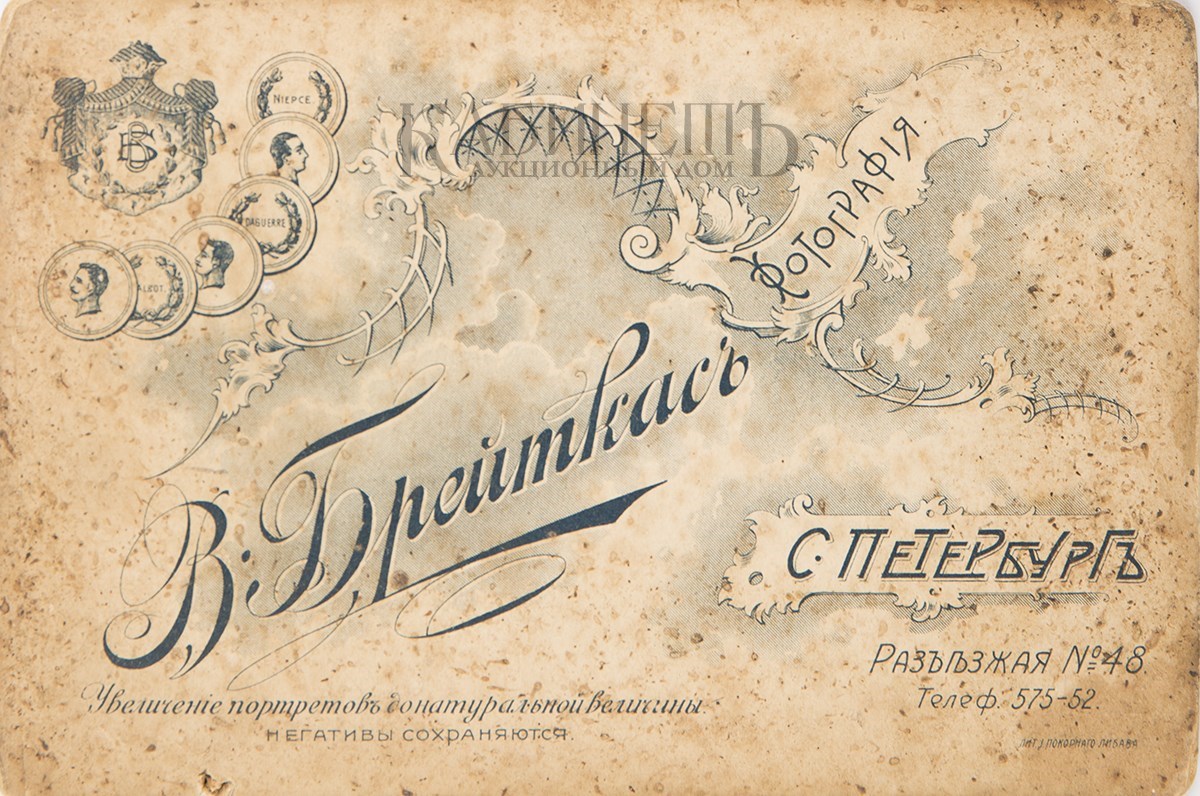 КАБИНЕТЪ
АУКЦИОННЫЙ ДОМ
NIEPCE.
DAGUERRE
ФОТОГРАФІЯ
В. Брейткасъ
С. ПЕТЕРБУРГЪ
РАЗЪѢЗЖАЯ № 48
Телеф. 575-52.
Увеличеніе портретовъ до натуральной величины
НЕГАТИВЫ СОХРАНЯЮТСЯ.
ЛИТ. І. ПОКОРНАГО ЛИБАВА